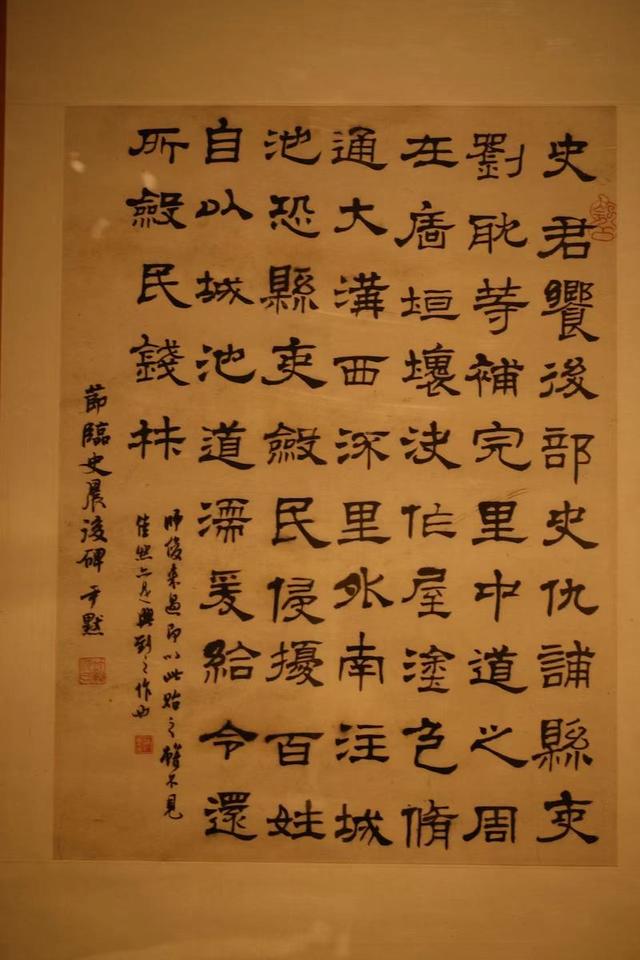 史君饗後部史仇誧縣吏
劉耽等補完里中道之周
在廧垣壞決作屋塗色脩
通大溝西流里外南注城
池恐縣吏斂民侵擾百姓
自以城池道濡麥給令還
所斂民錢材
節臨史晨後碑 尹默
師俊來過即以此貽之雖不見
佳然亦是興到之作也